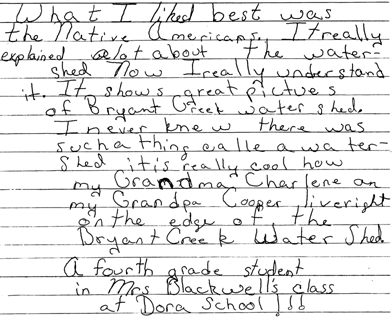 What I liked best was
the Native Americans. It really
explained alot about the water-
shed Now I really understand
it. It shows great pictues
of Bryant Creek water shed.
I never knew there was
such a thing calle a water-
shed it is really cool how
my Grandma Charlene an
my Grandpa Cooper live right
on the edge of the
Bryant Creek Water Shed.
A fourth grade student
in Mrs Blackwell's class
at Dora School!!!